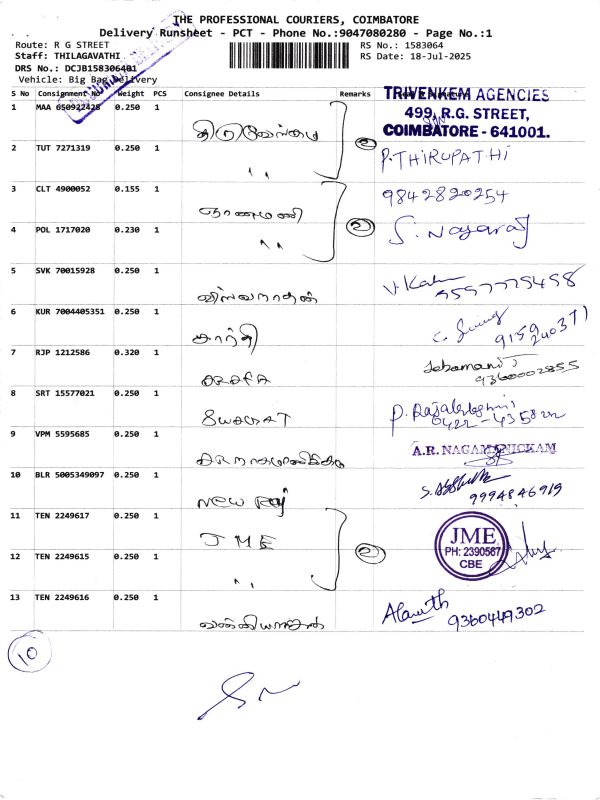 THE PROFESSIONAL COURIERS, COIMBATORE
Delivery Runsheet - PCT - Phone No.:9047080280 - Page No.:1
Route: R G STREET
RS No.: 1583064
Staff: THILAGAVATHI
RS Date: 18-Jul-2025
DRS No.: DCJB158306401
Vehicle: Big Bag Delivery
S No Consignment No Weight PCS Consignee Details Remarks
TRIVENKEM AGENCIES
499, R.G. STREET,
COIMBATORE - 641001.
1 MAA 650922428 0.250 1
2 TUT 7271319 0.250 1 " P.THIRUPATHI
3 CLT 4900052 0.155 1 ஞானமணி 9842820254
4 POL 1717020 0.230 1 " S. Nagaraj
5 SVK 70015928 0.250 1 விஸ்வநாதன்
6 KUR 7004405351 0.250 1 சாந்தி
7 RJP 1212586 0.320 1 Jebamani 9360002855
8 SRT 15577021 0.250 1 P. Rajalakshmi
9 VPM 5595685 0.250 1 A.R. NAGAMANICKAM
10 BLR 5005349097 0.250 1 New Raj 9994846919
11 TEN 2249617 0.250 1 JME
JME
PH: 2390567
CBE
12 TEN 2249615 0.250 1 "
13 TEN 2249616 0.250 1 9360449302
10